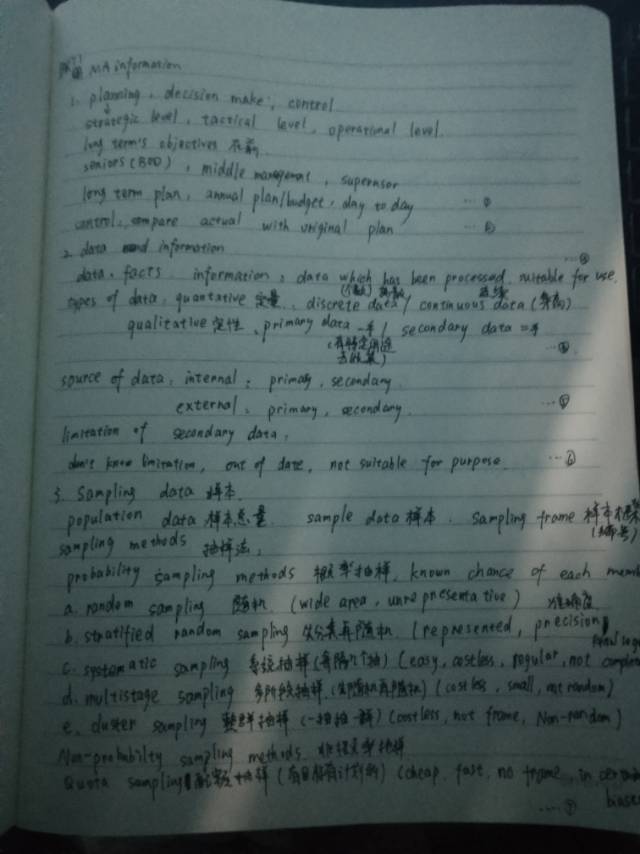 MA information
1. planning, decision make, control
strategic level, tactical level, operational level.
long term's objectives 在前
seniors (BOD), middle management, supervisor
long term plan, annual plan/budget, day to day ... ①
control: compare actual with original plan ... ②
2. data and information ... ③
data: facts. information: data which has been processed. suitable for use.
types of data: quantative 定量. discrete data / continuous data (身高)
(个数) 离散 连续
qualitative 定性. primary data 一手 / secondary data 二手
(有特定用途 去收集) ... ④
source of data: internal: primary, secondary.
external: primary, secondary. ... ⑤
limitation of secondary data:
don't know limitation, out of date, not suitable for purpose. ... ⑥
3. Sampling data 样本.
population data 样本总量. sample data 样本. Sampling frame 样本框架
(编号)
sampling methods 抽样法:
probability sampling methods 概率抽样. known chance of each memb
a. random sampling 随机. (wide area, unrepresentative) 准确度
b. stratified random sampling 先分类再随机. (represented, precision,
c. systematic sampling 系统抽样 (每隔n个抽) (easy, costless, regular, not complete
d. multistage sampling 多阶段抽样. (先随机再随机) (costless, small, not random)
e. cluster sampling 整群抽样 (一抽抽一群) (costless, not frame, Non-random)
Non-probabilty sampling methods. 非概率抽样
Quota sampling 配额抽样 (有目标有计划的) (cheap. fast. no frame, in certain
biased
... ⑦